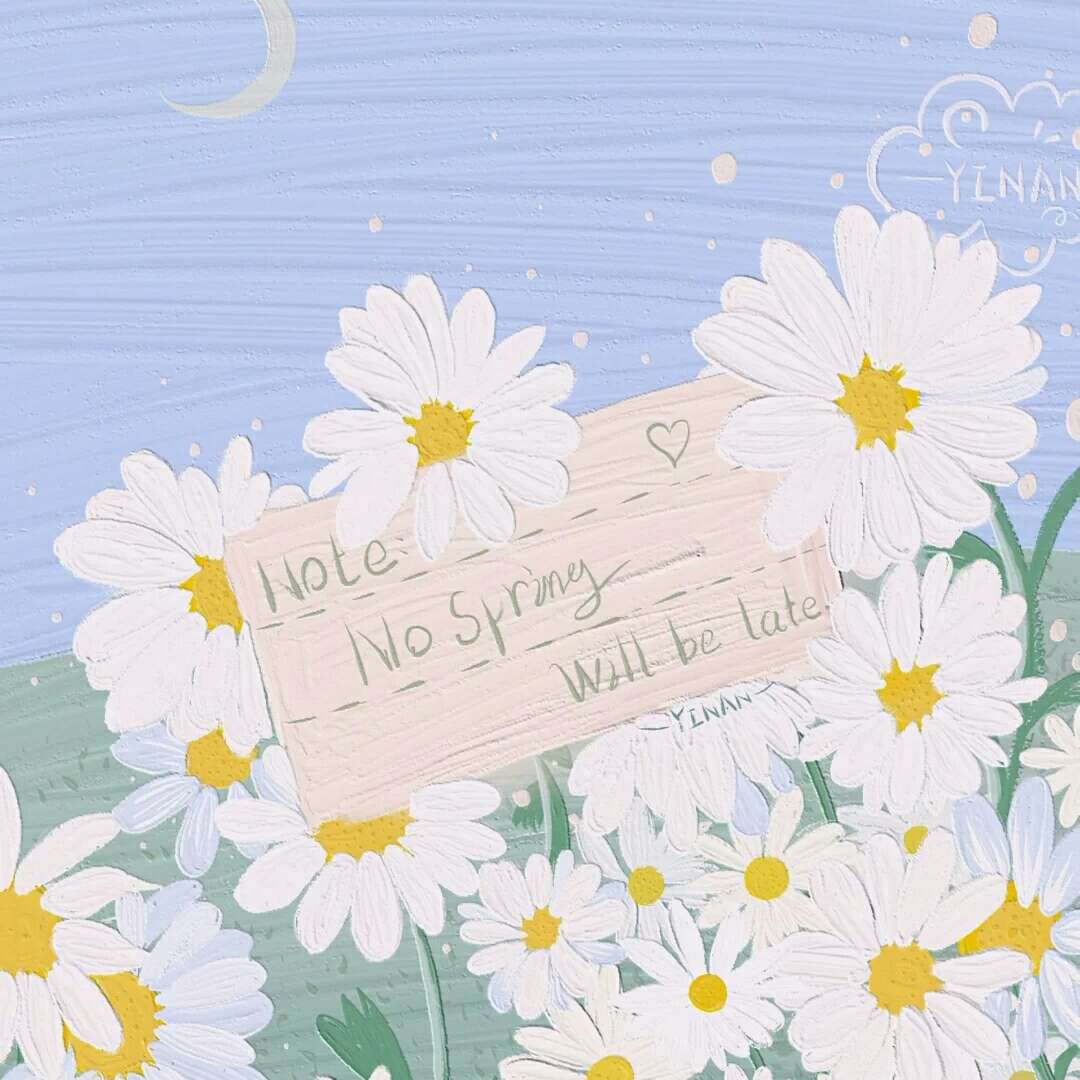 YINAN
Note:
No Spring
Will be late.
YINAN